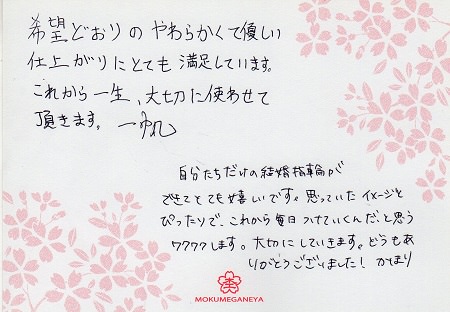 希望どおりの やわらかくて優しい
仕上がりにとても 満足しています。
これから一生、大切に使わせて
頂きます。 一帆
自分たちだけの結婚指輪が
できてとても嬉しいです。思っていたイメージと
ぴったりで、これから毎日つけていくんだ、と思う
ワクワクします。大切にしていきます。どうもあ
りがとうございました! かほり
MOKUMEGANEYA